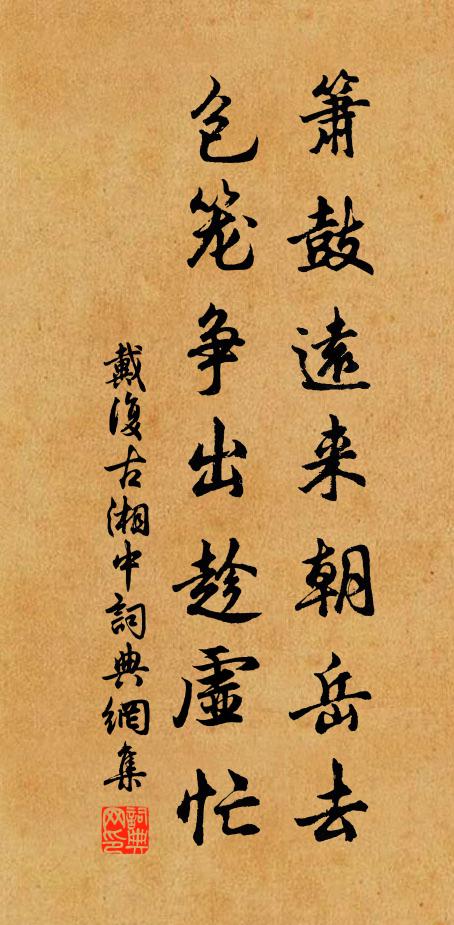 箫鼓遠来朝岳去
包笼争出趁虛忙
戴復古湘中詞典網集
詞典网印